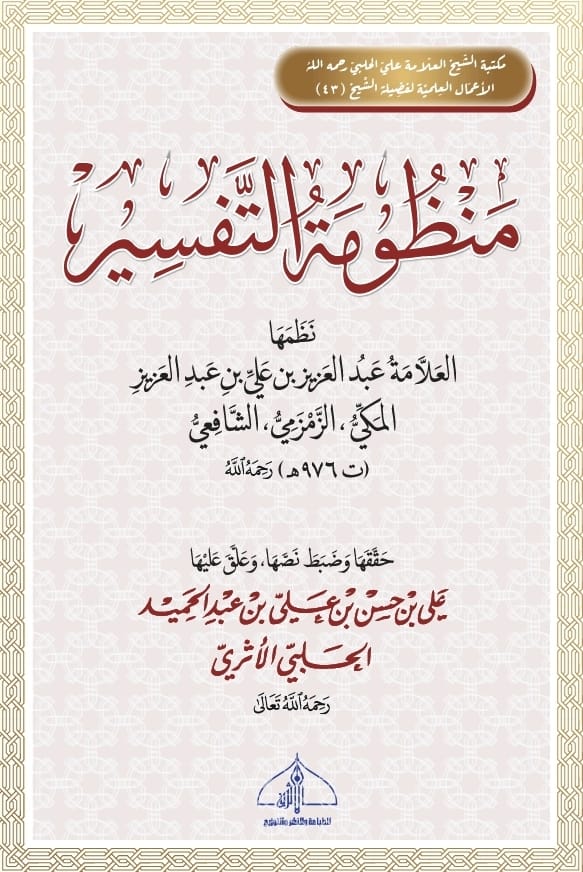 مكتبة الشيخ العلامة علي الحلبي رحمه الله
الأعمال العلمية لفضيلة الشيخ (٤٣)
مَنْظُومَةُ التَّفْسِيرِ
نَظَمَهَا
العَلَّامَةُ عَبْدُ العَزِيزِ بن عَلِيِّ بنِ عَبدِ العَزِيزِ
المَكِّيُّ، الزَّمْزَمِيُّ، الشَّافِعِيُّ
(ت ٩٧٦هـ) رَحِمَهُ اللَّهُ
حَقَّقَهَا وَضَبَطَ نَصَّهَا، وَعَلَّقَ عَلَيْهَا
عَلي بْن حَسَن بْن عَلِيّ بْن عَبْدِ الحَمِيد
الحَلَبِيّ الأَثَرِيّ
رَحِمَهُ اللَّهُ تَعَالَى
للطباعة والنشر والتوزيع